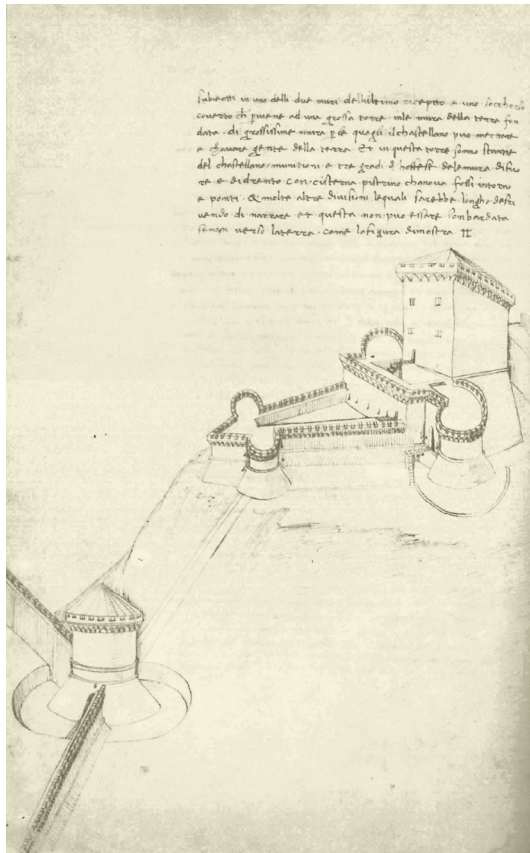 in uno delli due muri dellultimo ricepto e uno
coverto ch pviene ad una grossa torre inle mura della terra fon
data di grossissime mura p le quagli ilchastellano puo mectare
e chavare gente della terra Et in questa torre sonno stantie
del chastellano munitioni e tre gradi d delemura difuo
re e didrento con cisterna pistrino chanova fossi intorno
e ponti Et molte altre divisioni lequali sarebbe longho descri
vendo di narrare et questa non puo essare bonbardata
senon verso laterra come lafigura dimostra